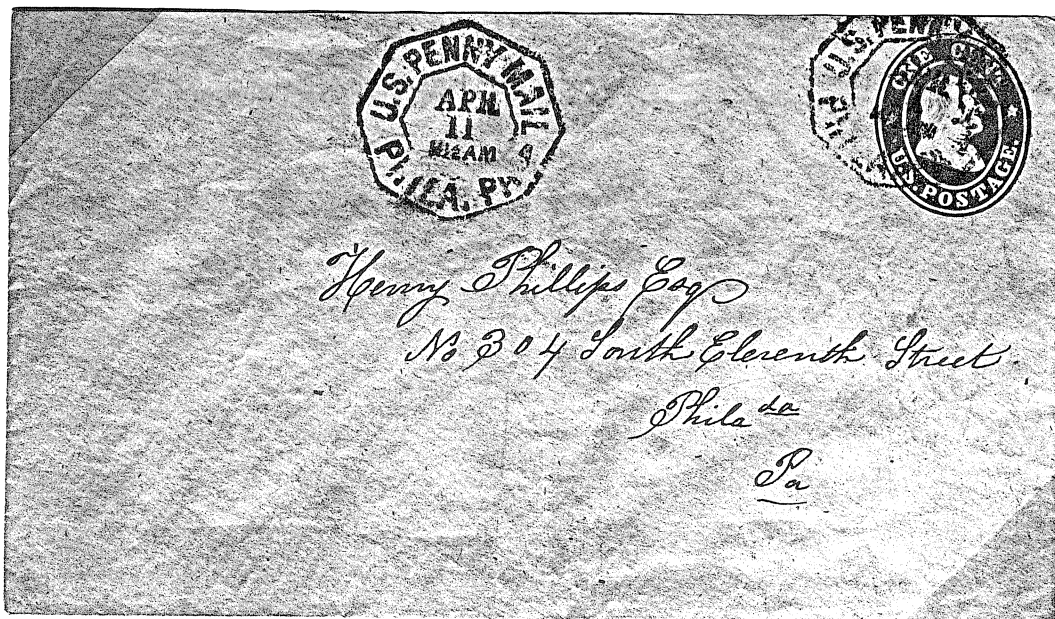 U.S. PENNY MAIL
APR
11
AM
PHILA, PA
U.S. PENNY
ONE CENT
U.S. POSTAGE.
Henry Phillips Esq
No 304 South Eleventh Street
Phila da
Pa